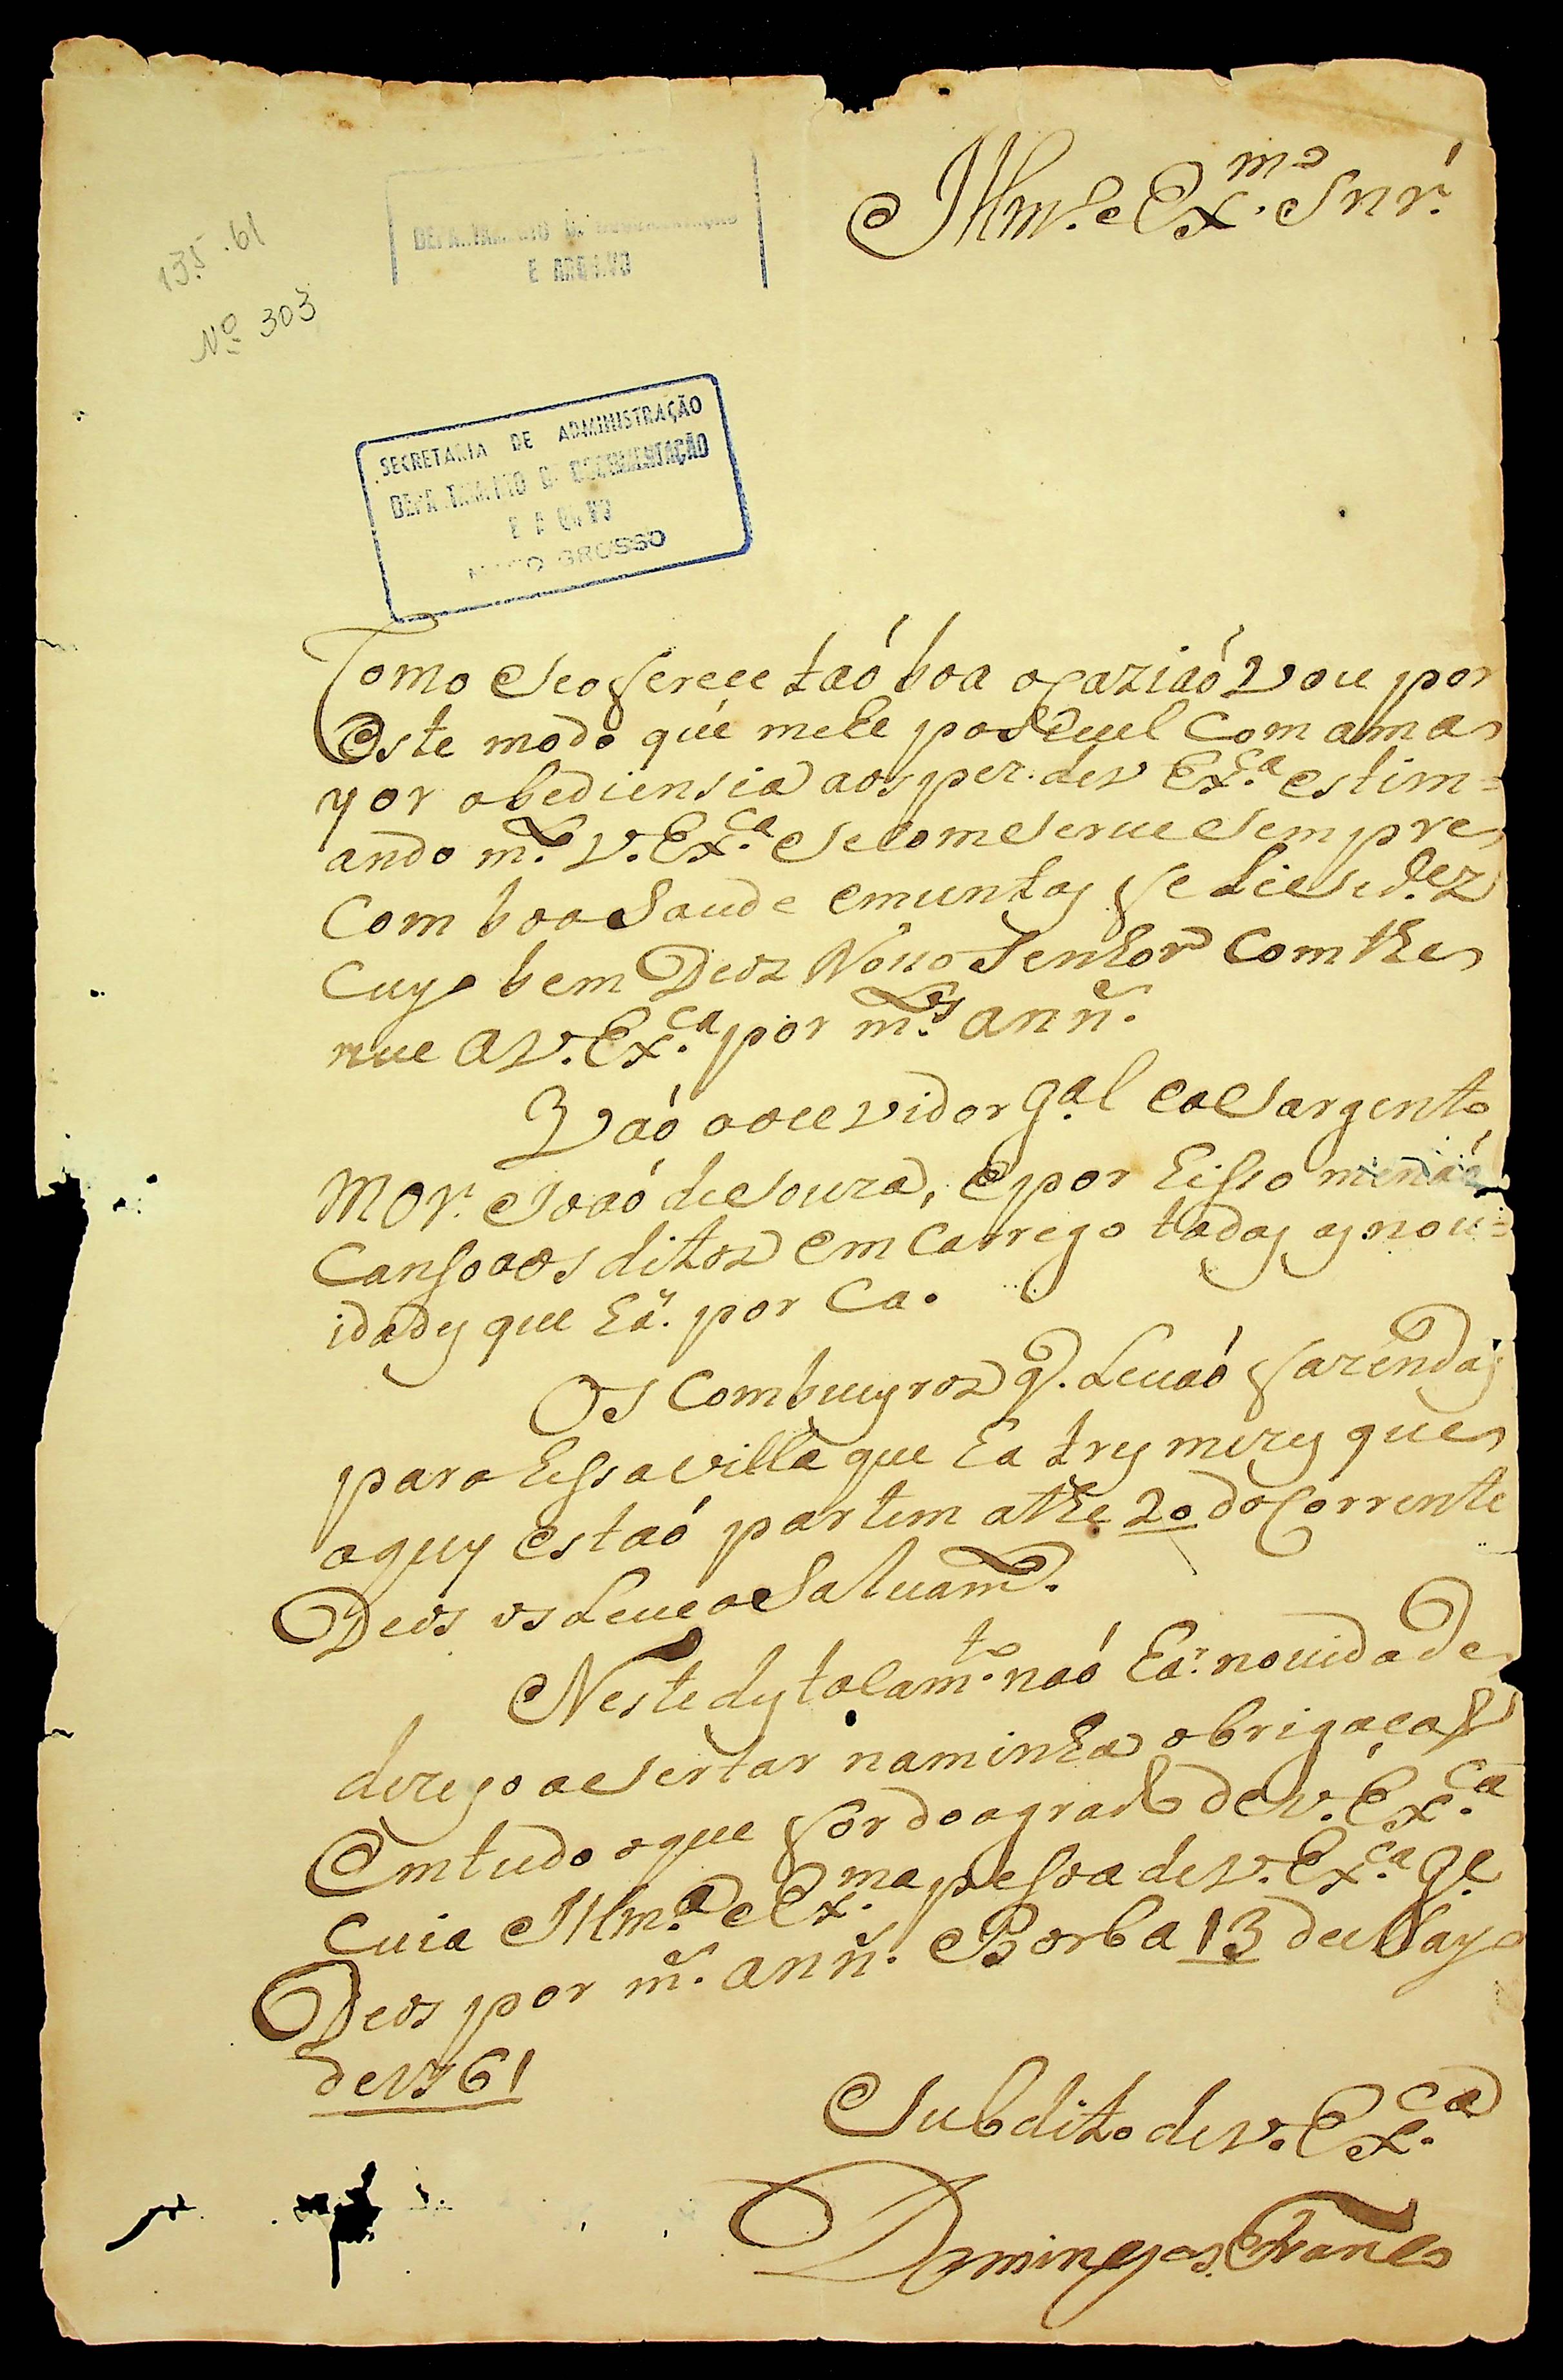 Illm.º e Ex.mo Snr.
135.61
Nº 303
DEPARTAMENTO DE DOCUMENTAÇÃO
E ARQUIVO
SECRETARIA DE ADMINISTRAÇÃO
DEPARTAMENTO DE DOCUMENTAÇÃO
E ARQUIVO
MATO GROSSO
Como seoferece taó boa ocaziaó vou por
Este modo que mehe posivel Com ama
yor obediensia aos pez. dev Ex.ca estim=
ando m.to V. Ex.ca secomserue sempre
Com boa Saude emuntas felicid.ez
Cuyo bem Deoz Noso Senhor Comthe
nue aV. Ex.ca por m.s ann.
Vaó oouvidor g.al eoSargento
Mor. Joaó deSouza, epor hisso menaó
Canso aos ditoz emCarrego todas as nou=
idades que ha. por Ca.
Os Combuyroz q. Leuaó fazendas
para hessavilla que ha tres mezes que
aquy estaó partem athe 20 do Corrente
Deos os Leue a Saluam.to
Neste destacam.to naó ha. novidade
dezejo asertar naminha obrigacaõ
Emtudo oque for doagrado dev. Ex.ca
Cuia Illm.a e Ex.ma pessoa dev. Ex.ca g.e
Deos por m. ann. Borba 13 de Mayo
de 1761
Subdito dev. Ex.ca
Domingos Franco